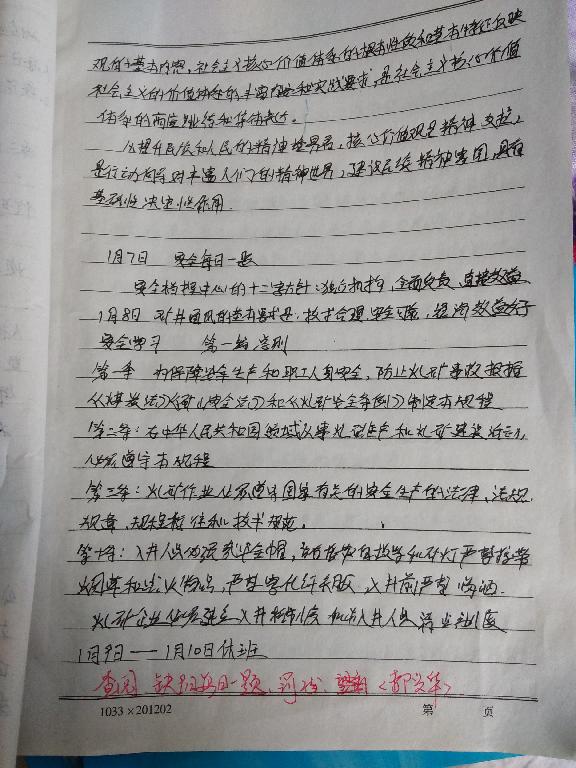 观的基本内容,社会主义核心价值体系的根本性质和基本特征反映
社会主义的价值体系的丰富内涵和实践要求,是社会主义核心价值
体系的高度凝练和集体表达。
以提升民族和人民的精神世界看,核心价值观是精神支柱,
是行动向导对丰富人们的精神世界,建设民族精神家园,具有
基础性决定性作用
1月7日 安全每日一题
安全档程中心的十二字方针:独立机构,全面负责,直接效益
1月8日 矿井通风的基本要求是:技术合理,安全可靠,经济效益好
安全学习 第一编 总则
第一条 为保障安全生产和职工人身安全,防止煤矿事故根据
《煤炭法》《矿山安全法》和《煤矿安全条例》制定本规程
第二条:在中华人民共和国领域从事煤炭生产和煤矿建设活动,
必须遵守本规程
第三条:煤矿作业必须遵守国家有关的安全生产的法律、法规、
规章、规程标准和技术规范.
第十条:入井人员必须戴安全帽,
烟草和点火物品,严禁穿化纤衣服,入井前严禁喝酒.
煤矿企业必须建立入井检身制度和出入井人员清点制度
1月9日——1月10日休班
查阅 缺7日每日一题,罚 <郝文华>
1033×201202
第 页